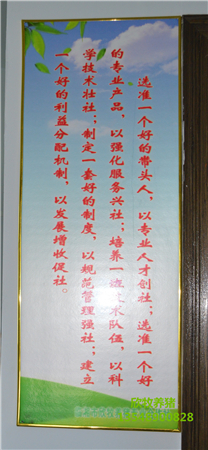 选准一个好的带头人，以专业人才创社；选准一个好
的专业产品，以强化服务兴社；培养一术队伍，以科
学技术壮社；制定一套好的制度，以规范管理强社；建立
一个好的利益分配机制，以发展增收促社。
欣牧养猪